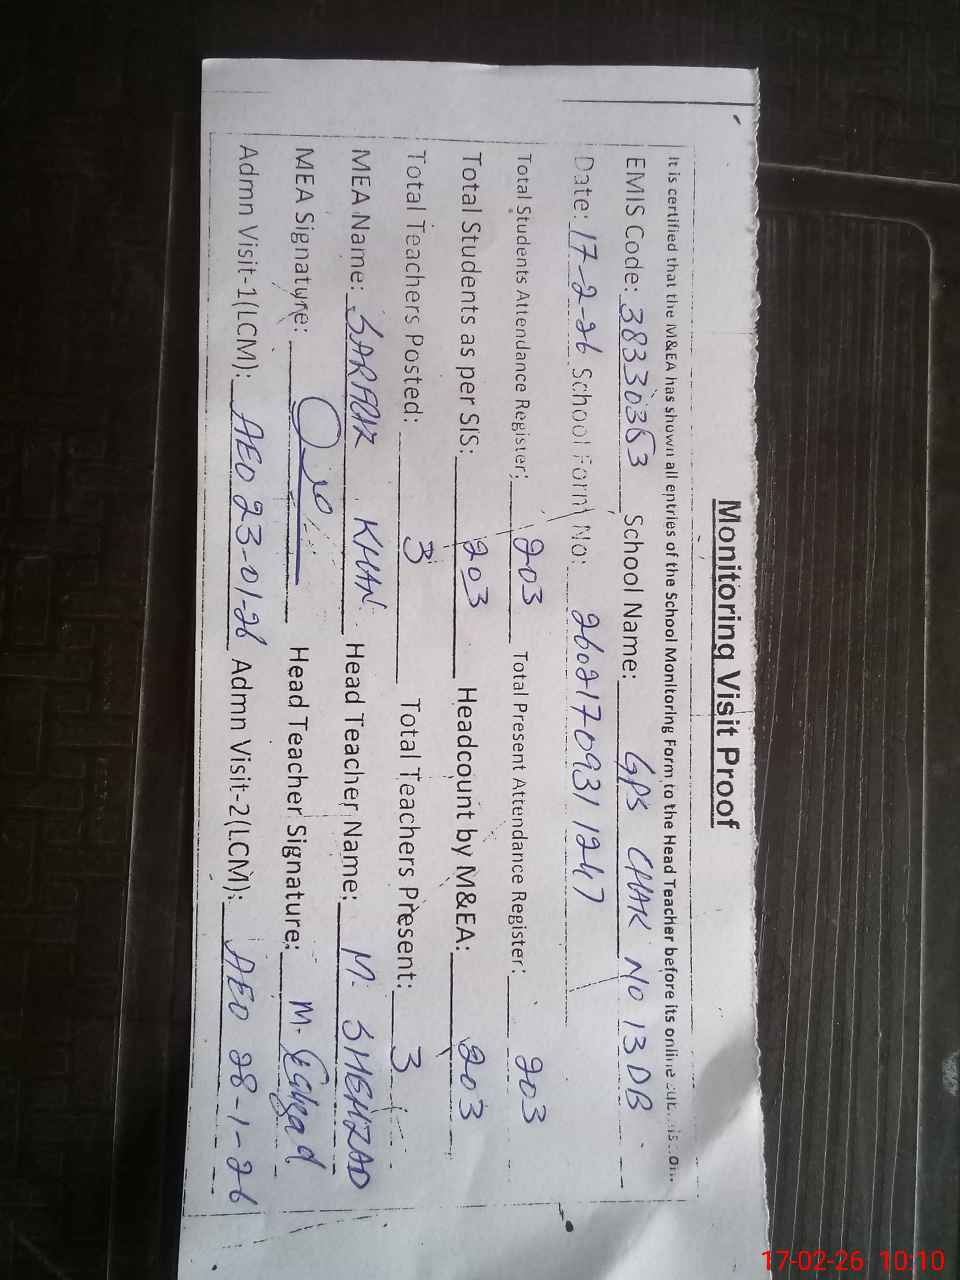 Monitoring Visit Proof
It is certified that the M&EA has shown all entries of the School Monitoring Form to the Head Teacher before its online
EMIS Code: 38330363 School Name: GPS CHAK NO 13 DB
Date: 17-2-26 School Form No: 260217093 1247
Total Students Attendance Register: 203 Total Present Attendance Register: 203
Total Students as per SIS: 203 Headcount by M&EA: 203
Total Teachers Posted: 3 Total Teachers Present: 3
MEA Name: KHAN Head Teacher Name: M. SHEHZAD
MEA Signature: Head Teacher Signature: M.
Admn Visit-1(LCM): AEO 23-01-26 Admn Visit-2(LCM): AEO 28-1-26
17-02-26 10:10